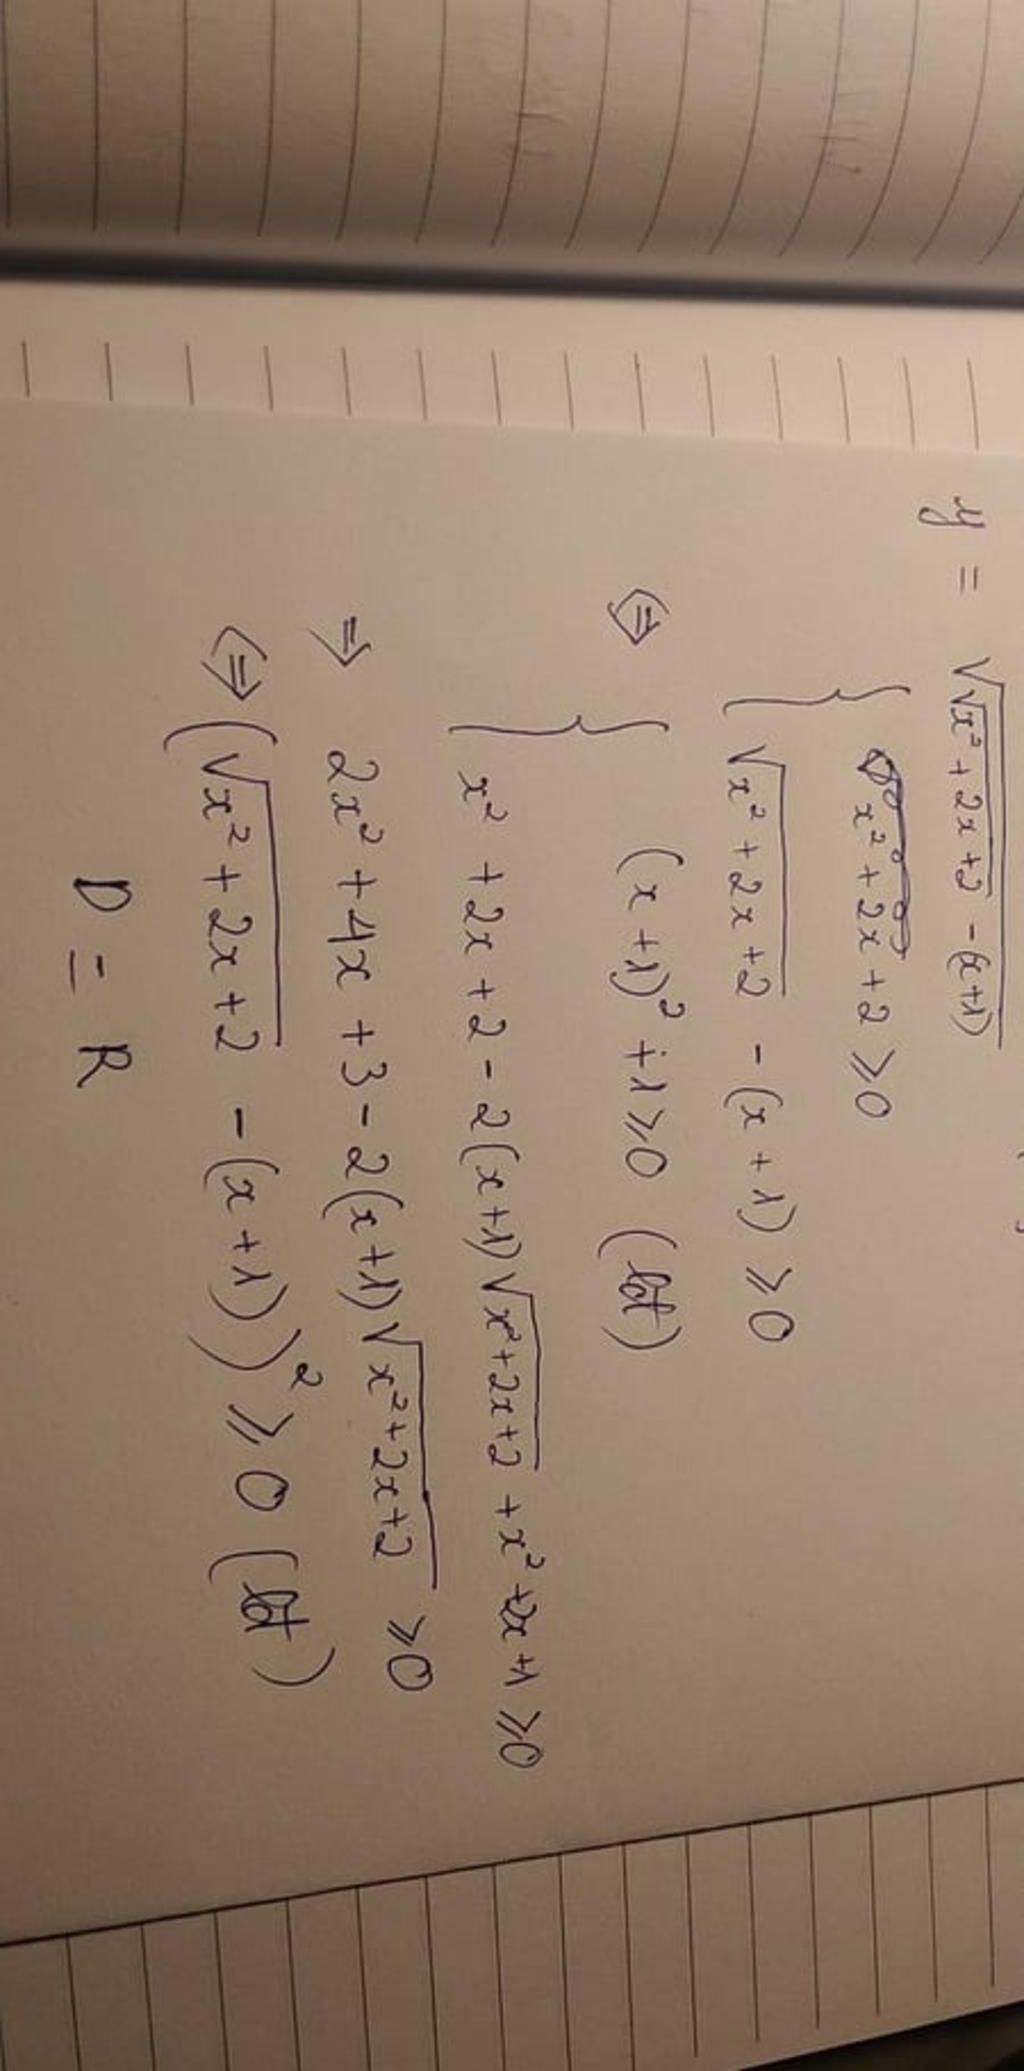 y = √(√(x² + 2x + 2) - (x+1))
{ x² + 2x + 2 ≥ 0
√(x² + 2x + 2) - (x + 1) ≥ 0
⇔ { (x + 1)² + 1 ≥ 0 (lđt)
x² + 2x + 2 - 2(x+1)√(x²+2x+2) + x² + 2x + 1 ≥ 0
⇒ 2x² + 4x + 3 - 2(x+1)√(x²+2x+2) ≥ 0
⇔ (√(x² + 2x + 2) - (x + 1))² ≥ 0 (lđt)
D = R